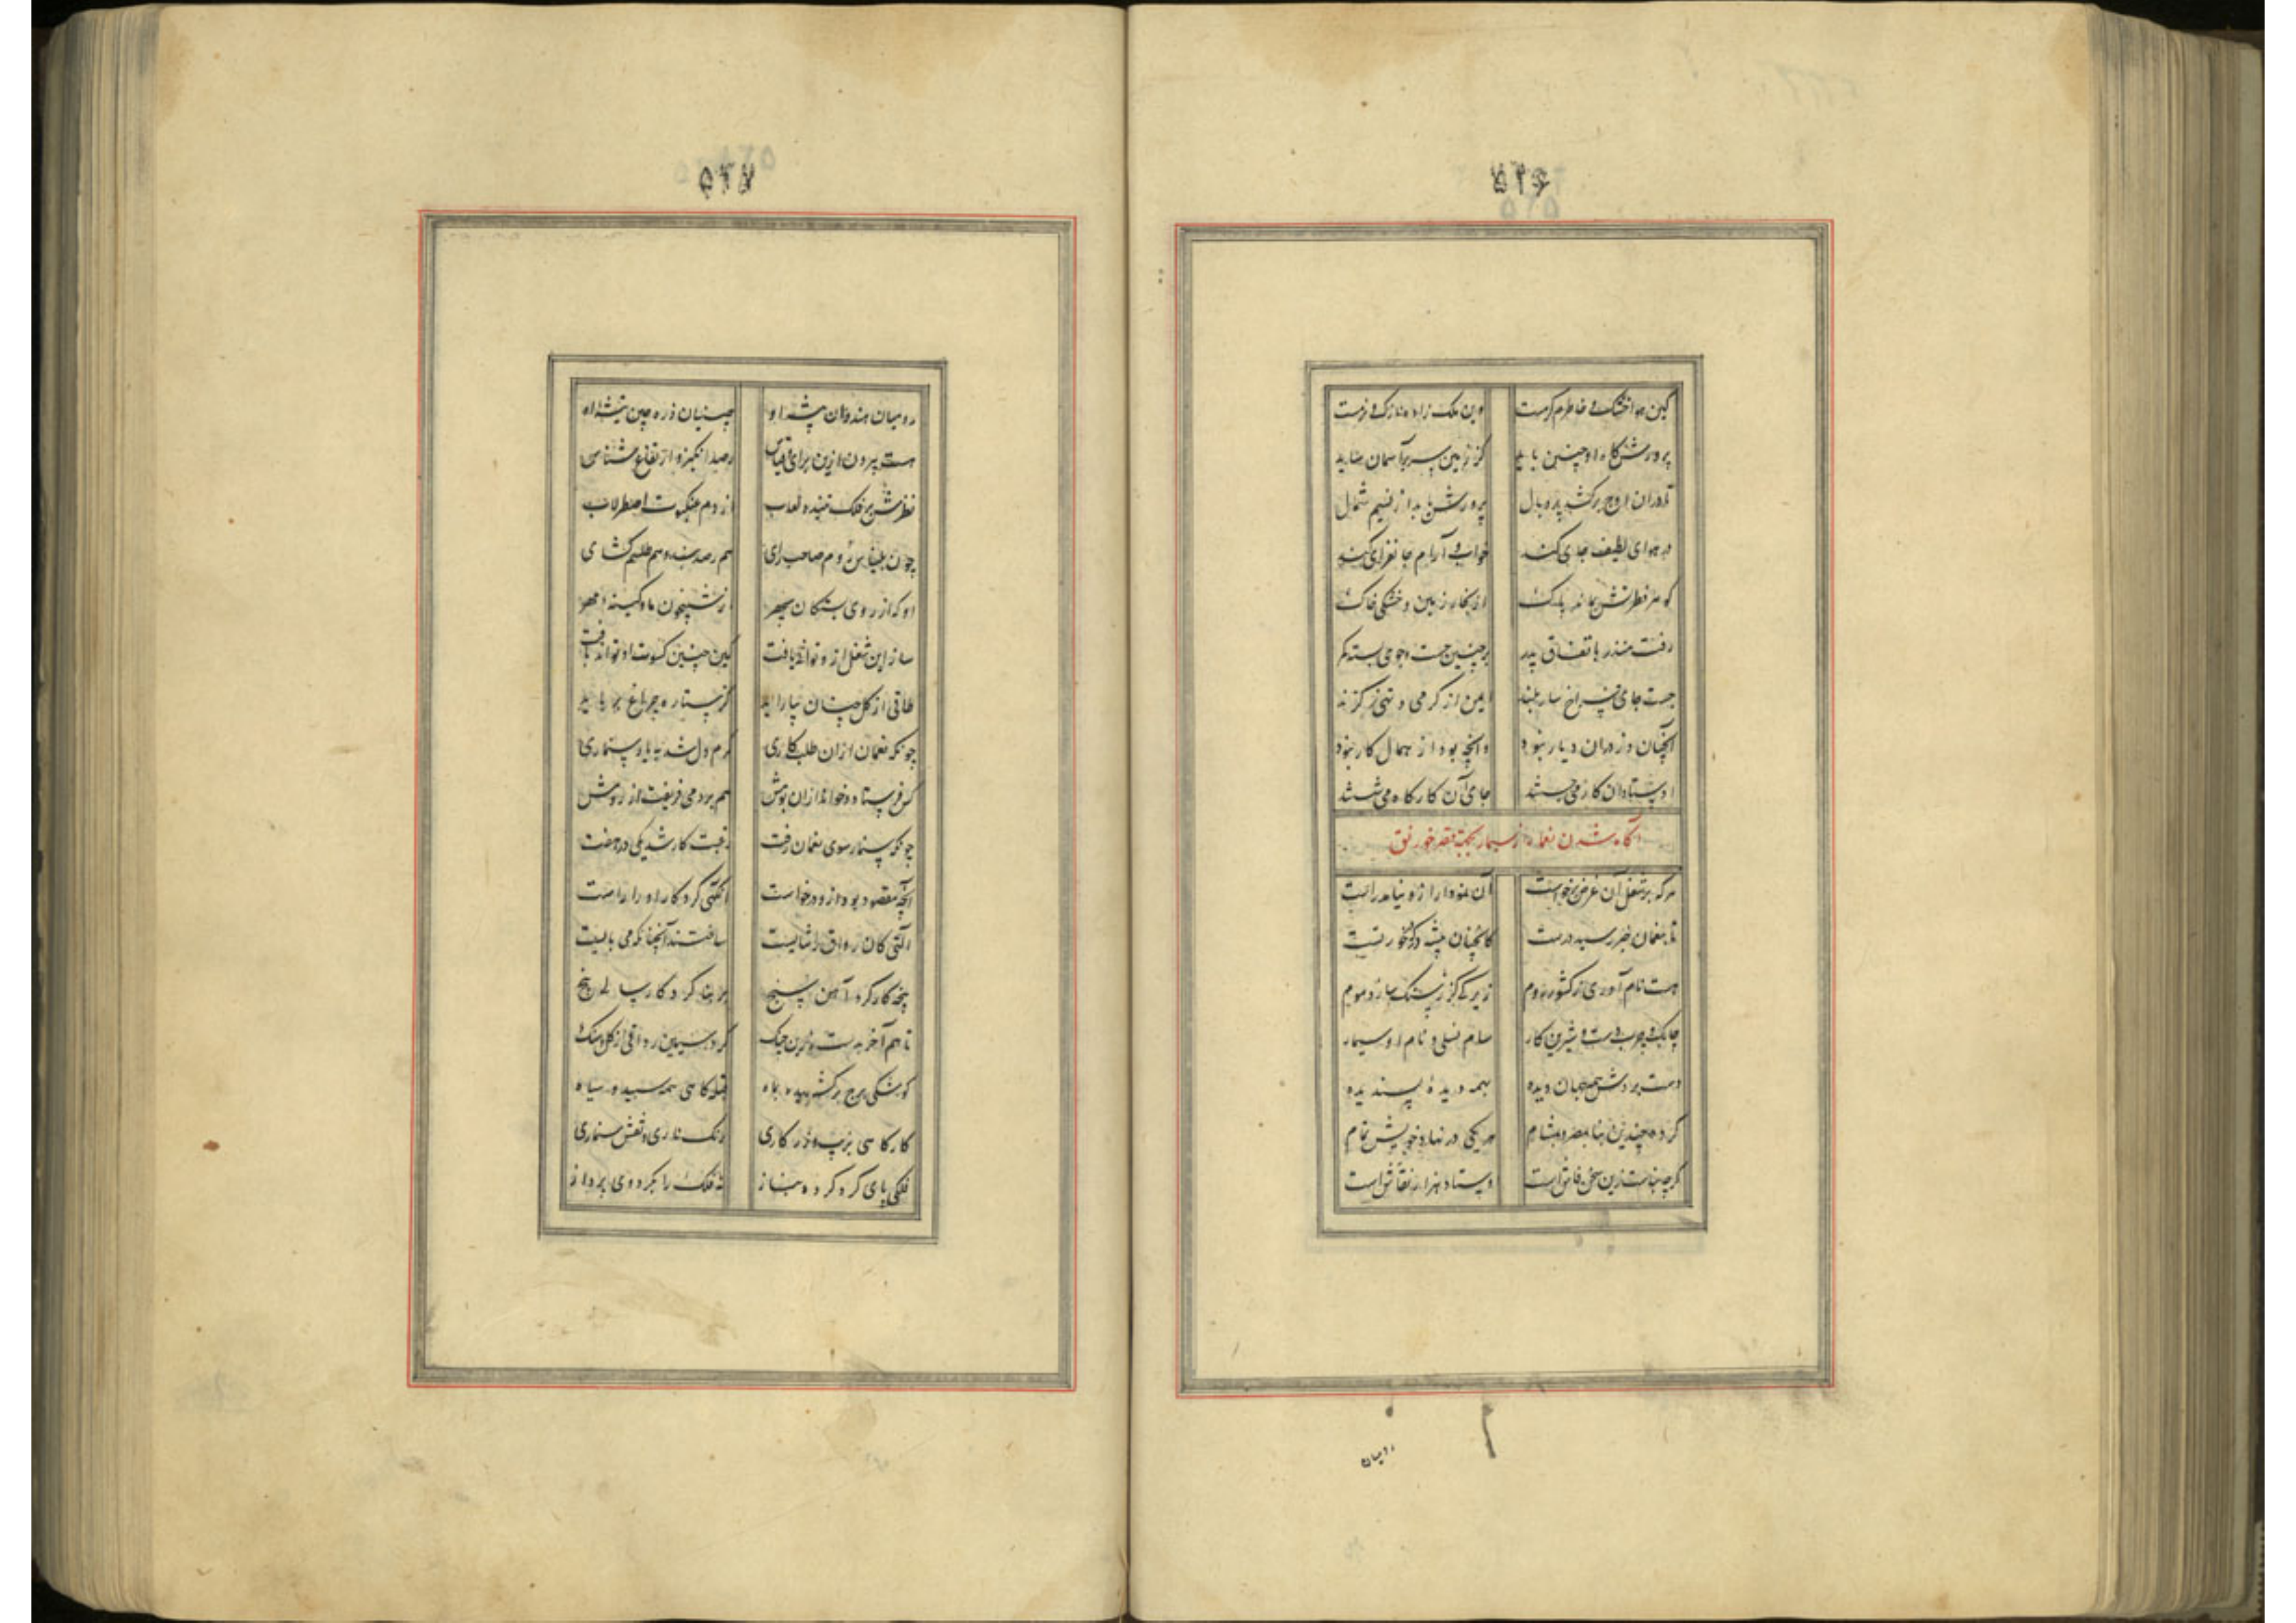 ۵۲۶
کین هوا خشک و خاطرم گرمست
وین ملک زاده نازک و نرمست
پرورش گاه او چنین باید
کز زمین سر بر آسمان ساید
تا دران اوج برکشد پر و بال
پرورش یابد از نسیم شمال
در هوای لطیف جای کند
خواب و آرام جانفزای کند
گوهر فطرتش بماند پاک
از بخار زمین و خشکی خاک
رفت منذر باتفاق پدر
بر چنین جست و جوی بسته کمر
جست جای فراخ ساز بلند
ایمن از گرمی و تهی ز گزند
آنچنان دز دران دیار نبود
وانچه بود از همال کار نبود
اوستادان کار می جستند
جای آن کارگاه می شستند
آگاه شدن نعمان از سیمار بجهت قصر خورنق
هرکه بر شغل آن غرض برخواست
آن نمودار ازو نیامد راست
تا بنعمان خبر رسید درست
کانچنان پیشه ور که در خور تست
هست نام آوری ز کشور روم
زیرکی کز ز سنگ سازد موم
چابک و چرب دست و شیرین کار
سام نسلی و نام او سیمار
دست بردش همه جهان دیده
بهمه دیدهٔ پسندیده
کرده چندین بنا بمصر و بشام
هر یکی در نهاد خویش تمام
گرچه بناست زین سخن فاش است
اوستاد هزار نقاش است
رومیان
۵۲۷
رومیان هندوان پیشهٔ او
چینیان ذره چین تیشهٔ او
هست بیرون ازین برای و قیاس
رصد انگیز و ارتفاع شناس
نظرش بر فلک تنیده لعاب
از دم عنکبوت اصطرلاب
چون بلیناس روم صاحب رای
هم رصد بند و هم طلسم گشای
او که از روی بستگان سپهر
از شبیخون ماه و کینهٔ مهر
ساز این شغل ازو توان یافت
کین چنین کسوت او تواند بافت
طاقی از گل چنان بیاراید
کز ستاره چراغ برباید
چونکه نعمان ازان طلب کاری
گرم دل شد بیاد سنماری
کس فرستاد و خواند ازان بومش
هم برومی فریفت از رومش
چونکه سنمار سوی نعمان رفت
رغبت کار شد یکی در هفت
آنچه مقصود بود ازو درخواست
آنگهی کرد کار او را راست
آلتی کان رواق را شایست
ساختند آنچنانکه می بایست
پنجه کارگر شد آهن سنج
بر بنا کرد کار سالی پنج
تا هم آخر بدست زرین چنگ
کرد سیمین رواقی از گل و سنگ
کوشکی برج برکشیده بماه
قبله گاهی همه سپید و سیاه
کارگاهی بزیب و زرکاری
رنگ ناری و نقش سنماری
فلکی پای گرد کرده بناز
نه فلک را بگرد وی پرواز